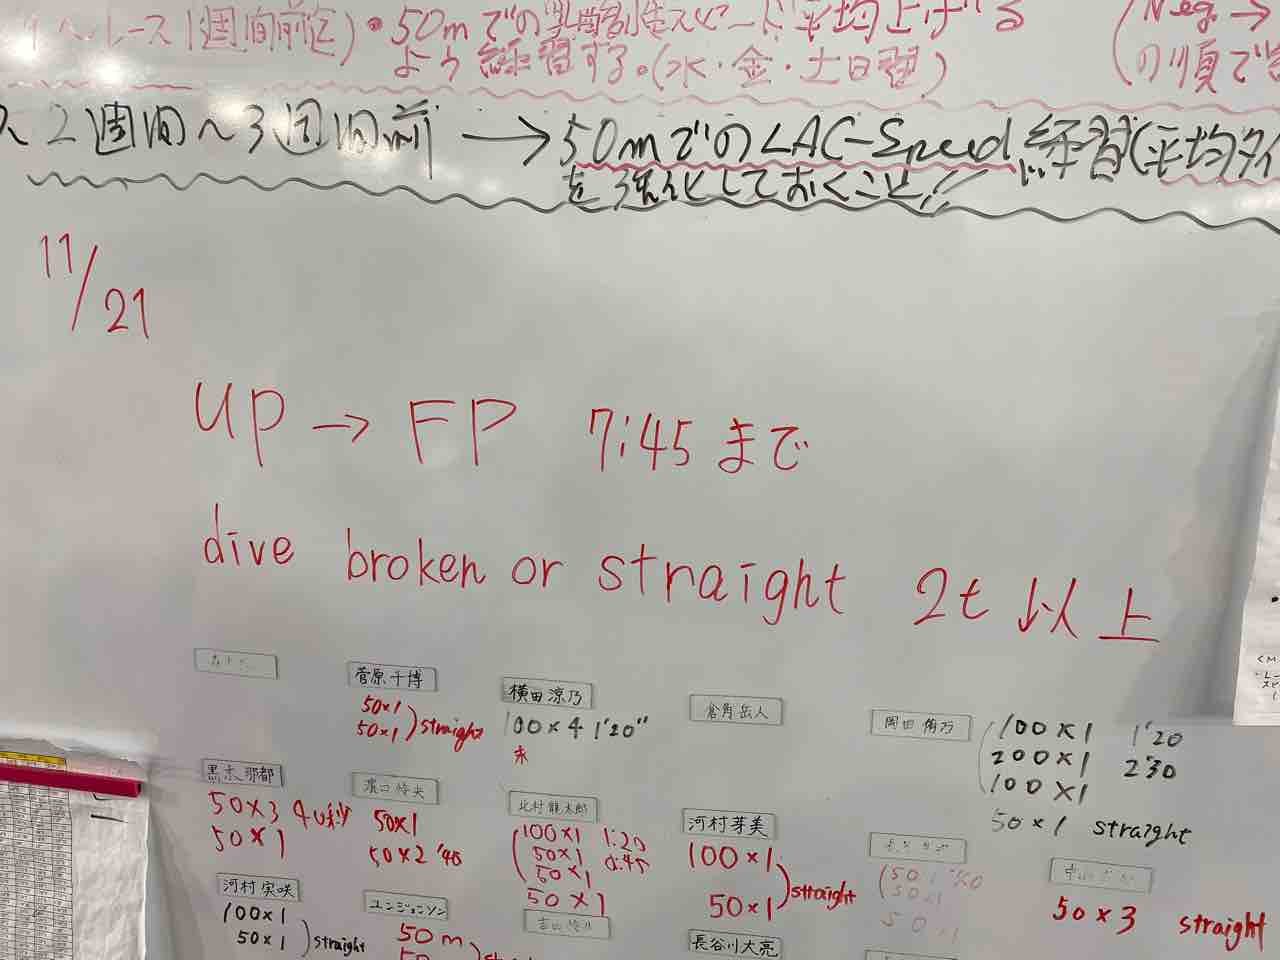 レース1週間前迄)・50mでの乳酸耐性スピード平均上げる (Neg→
よう練習する。(水・金・土日祝) の順で
2週間～3週間前 → 50mでのLAC-Speed練習(平均タイ
を強化しておくこと!!
11/21
up → FP 7:45まで
dive broken or straight 2t 以上
菅原千博
50×1
50×1 straight
横田涼乃
100×4 1'20"
倉角岳人
100×1 1'20
200×1 2'30
100×1
50×1 straight
黒木那都
50×3 40秒
50×1
50×1
50×2 '45
北村龍太郎
100×1 1:20
50×1 0:45
50×1
50×1
河村芽美
100×1
50×1 straight
50×1
50×1
50×3 straight
河村実咲
100×1
50×1 straight
ユンジョンソン
50m
50 straight
長谷川大亮